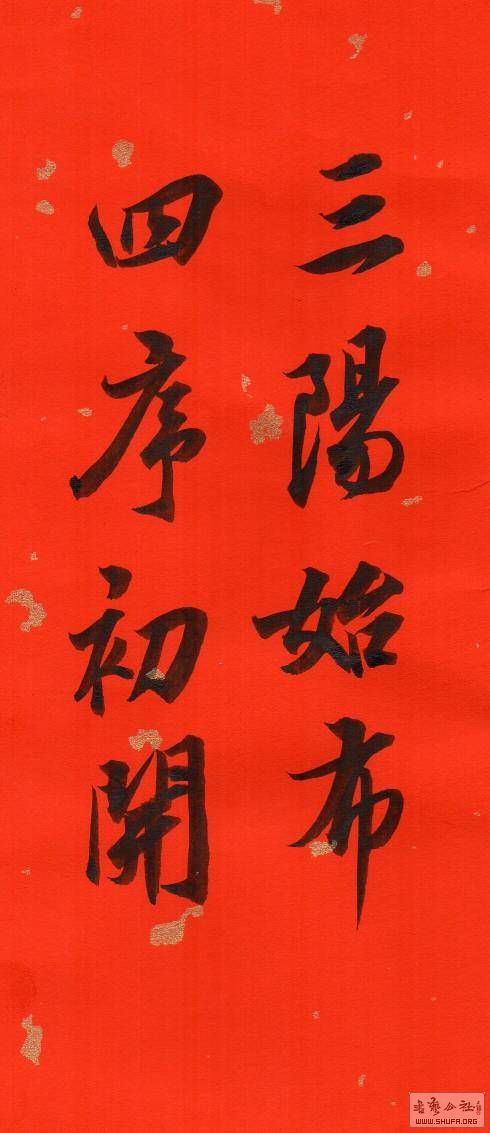 三陽始布
四序初開
书艺公社
WWW.SHUFA.ORG